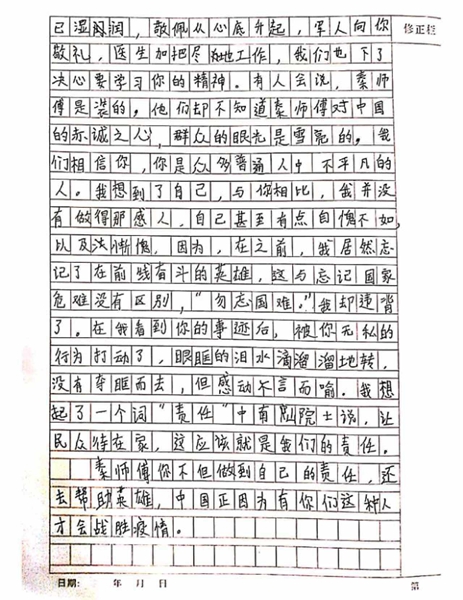 已湿润，敬佩从心底升起，军人向你 修正栏
敬礼，医生加把尽地工作，我们也下了
决心要学习你的精神。有人会说，秦师
傅是装的，他们却不知道秦师傅对中国
的赤诚之心，群众的眼光是雪亮的，我
们相信你，你是众多普通人中不平凡的
人。我想到了自己，与你相比，我并没
有做得那感人，自己甚至有点自愧不如，
以及法惭愧，因为，在之前，我居然忘
记了在前线奋斗的英雄，这与忘记国家
危难没有区别，“勿忘国难。”我却违背
了。在我看到你的事迹后，被你无私的
行为打动了，眼眶的泪水滴溜溜地转，
没有夺眶而去，但感动不言而喻。我想
起了一个词“责任”中有院士说，让
民众待在家，这应该就是我们的责任。
秦师傅你不但做到自己的责任，还
去帮助英雄，中国正因为有你们这种人
才会战胜疫情。
日期： 年 月 日 第